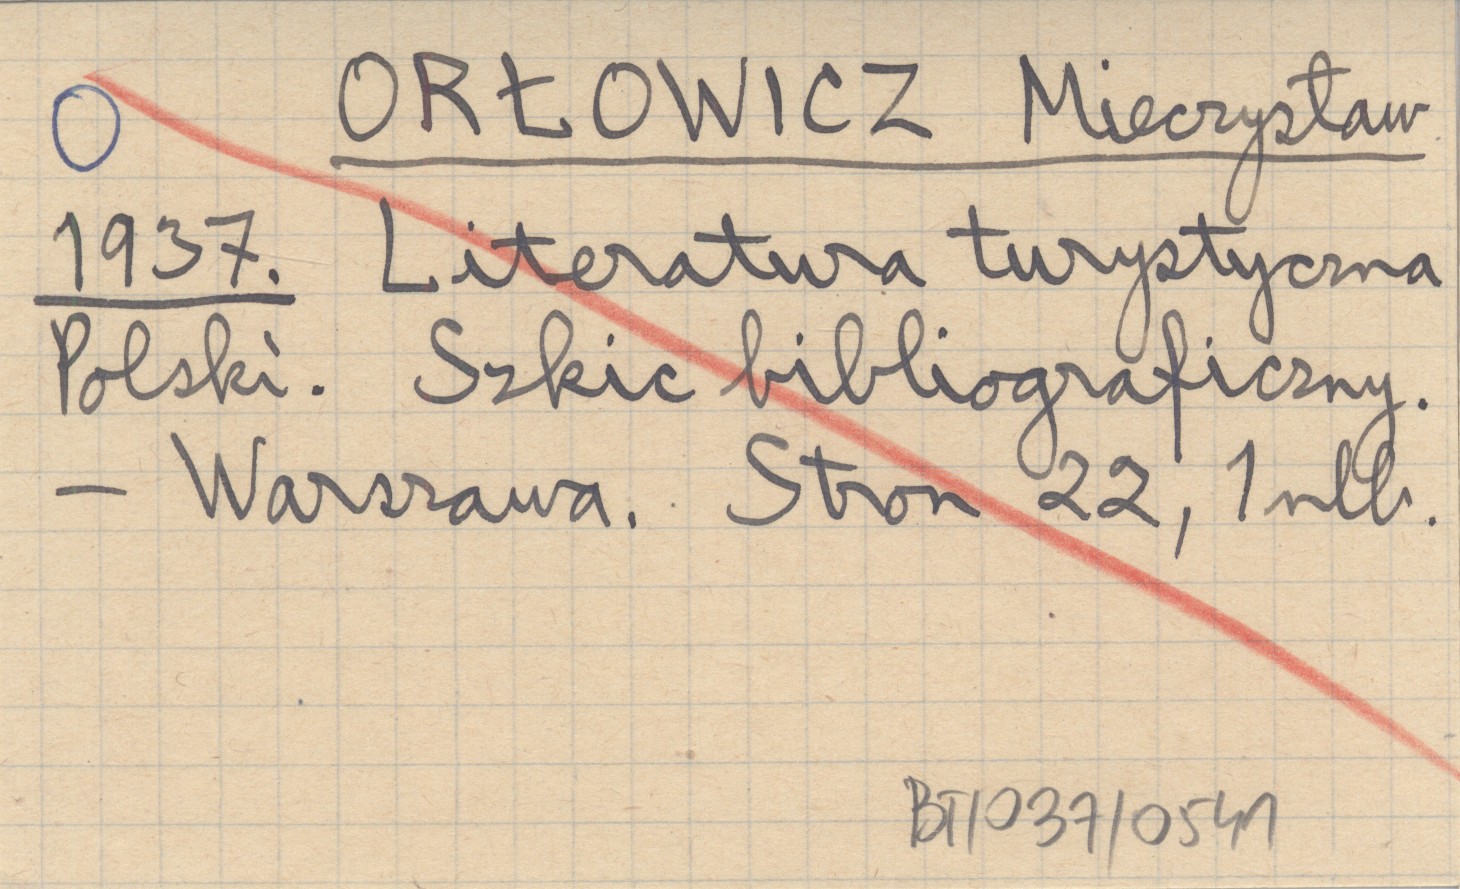 O ORŁOWICZ Mieczysław
1937. Literatura turystyczna
Polski. Szkic bibliograficzny.
— Warszawa. Stron 22, 1 nlb.
BT/037/0541